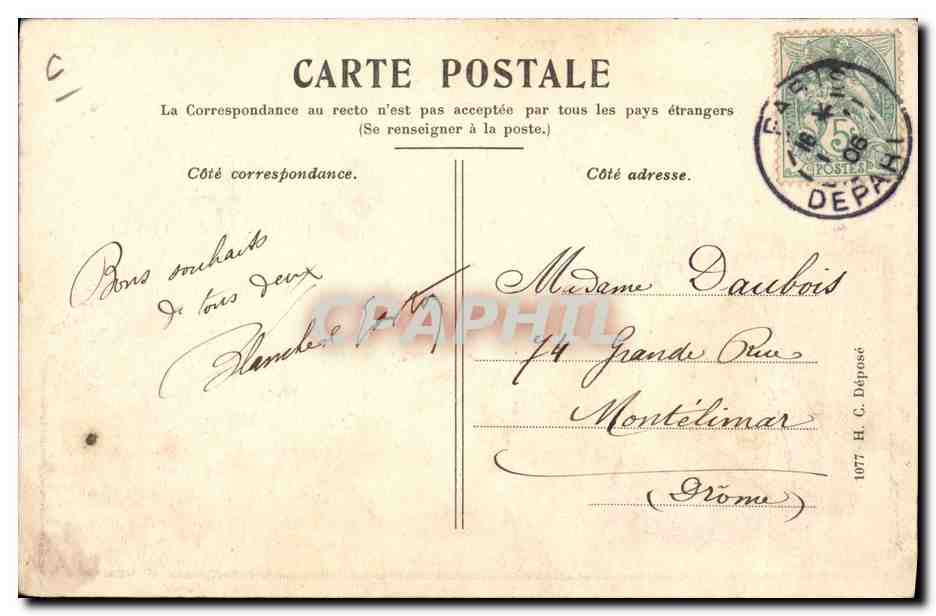 C
CARTE POSTALE
La Correspondance au recto n'est pas acceptée par tous les pays étrangers
(Se renseigner à la poste.)
Côté correspondance.
Côté adresse.
5c
POSTES
PARIS
18
06
DEPART
Bons souhaits
de tous deux
Blanche
CPAPHIL
Madame Daubois
74 Grande Rue
Montélimar
(Drôme)
1077 H. C. Déposé